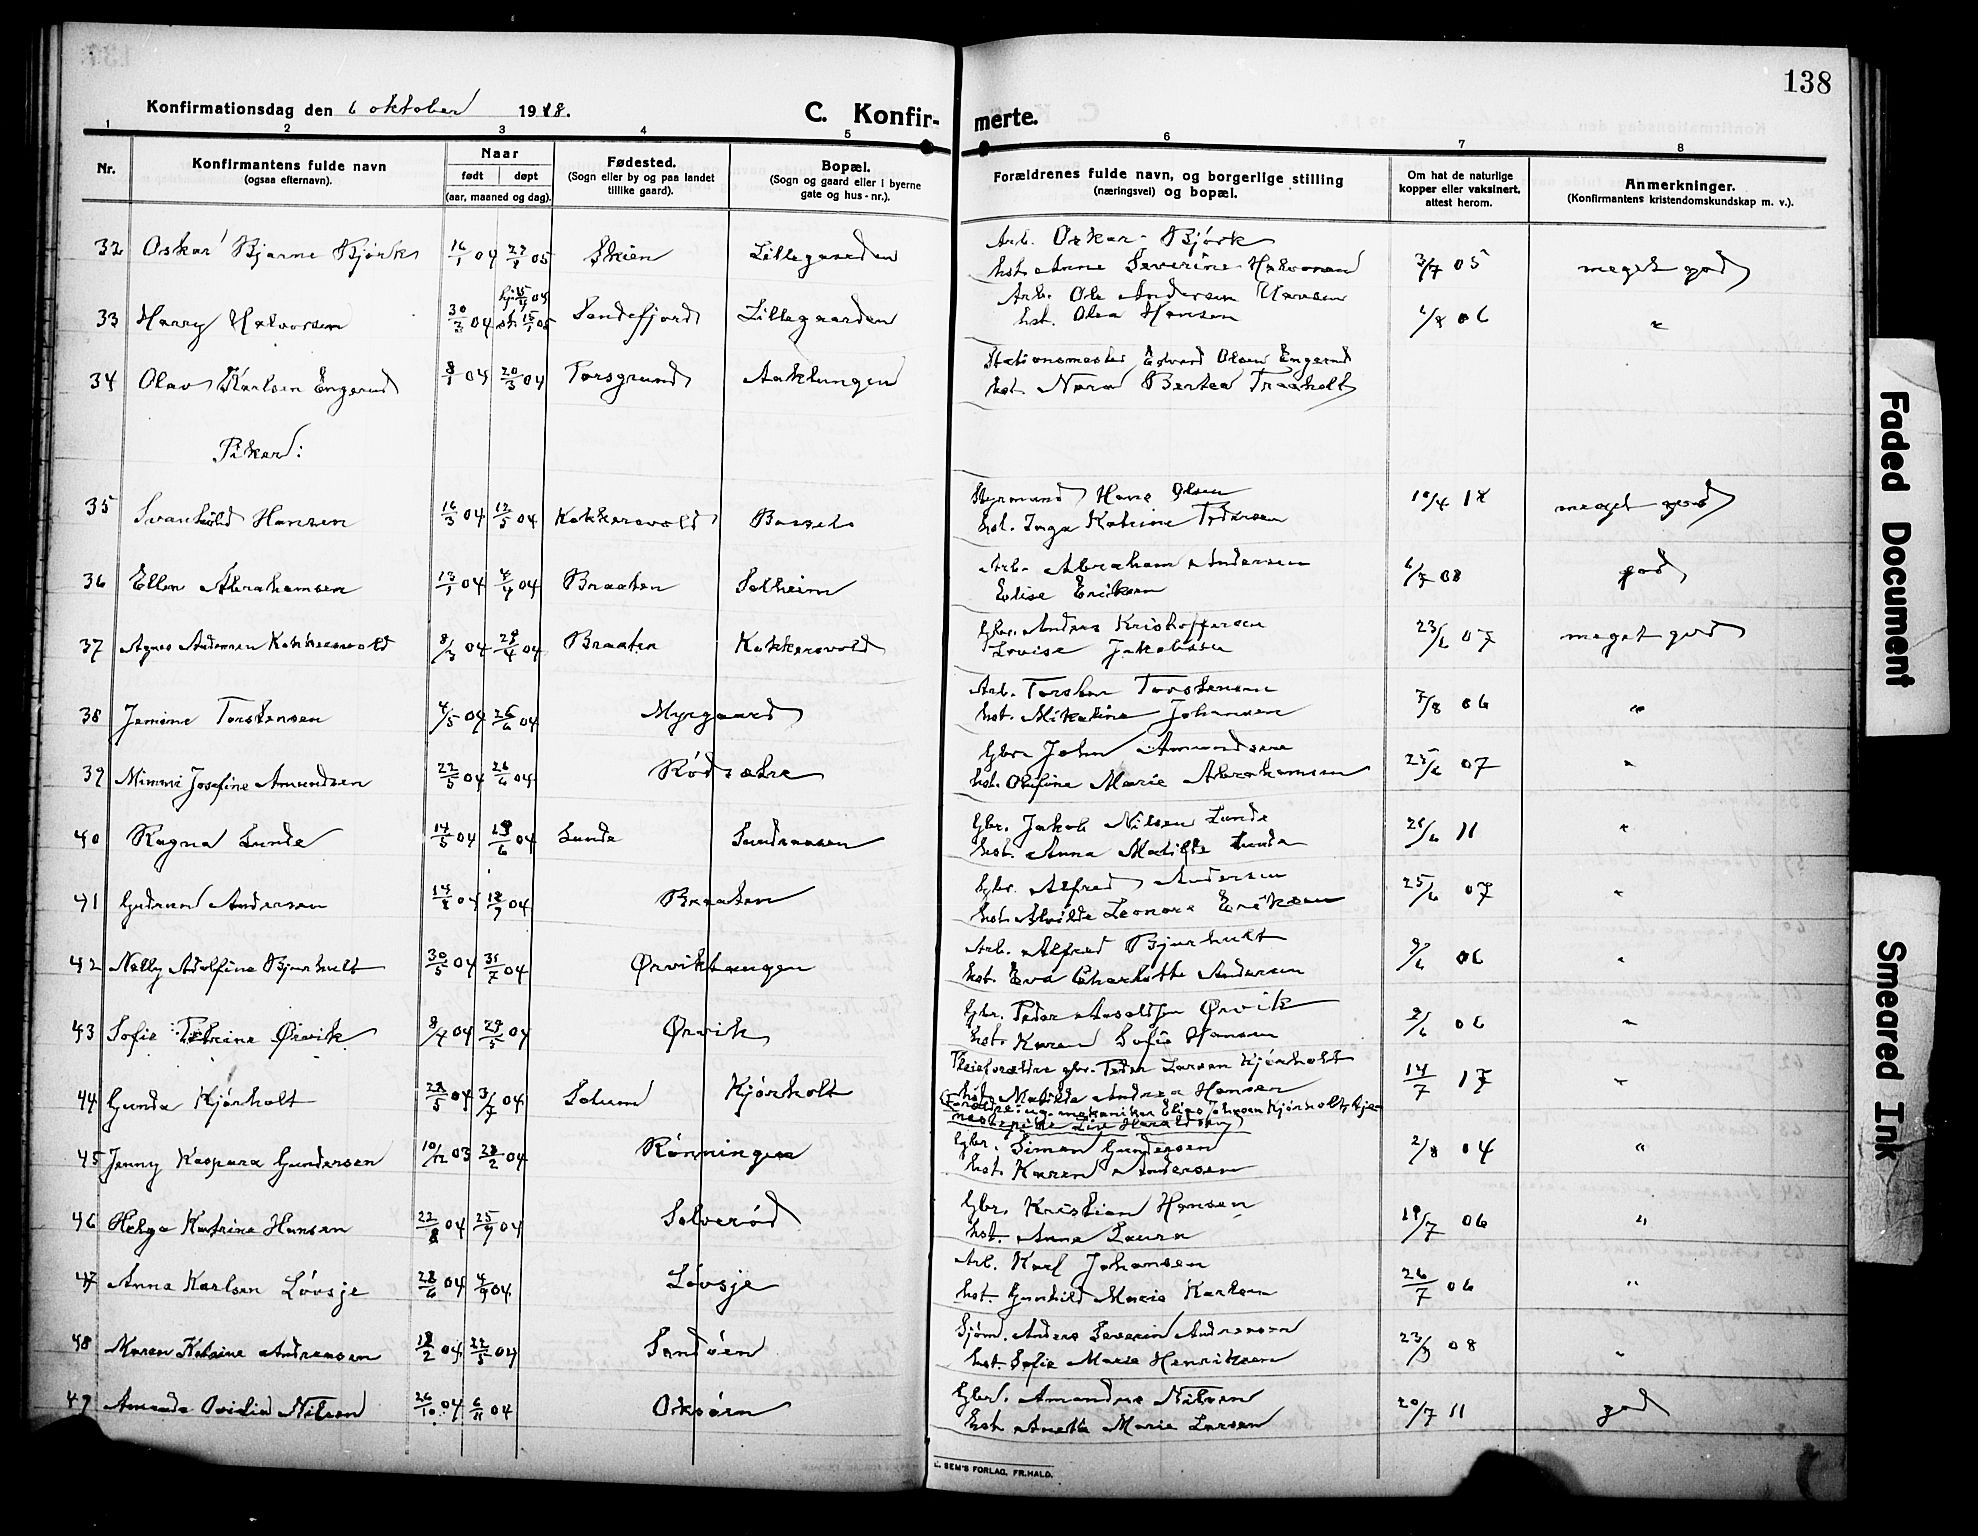 138
Konfirmationsdag den 6 oktober 1918.
C. Konfir- merte.
1 2 3 4 5 6 7 8
Nr.
Konfirmantens fulde navn
(ogsaa efternavn).
Naar
født døpt
(aar, maaned og dag).
Fødested.
(Sogn eller by og paa landet
tillike gaard).
Bopæl.
(Sogn og gaard eller i byerne
gate og hus-nr.).
Forældrenes fulde navn, og borgerlige stilling
(næringsvei) og bopæl.
Om hat de naturlige
kopper eller vaksinert,
attest herom.
Anmerkninger.
(Konfirmantens kristendomskundskap m. v.).
32 Oskar Bjarne Bjørk 16/1 04 05 Skien Lillegaarden
Arb. Oskar Bjørk
hst. Anne Severine Halvorsen 3/7 05 meget god
33 Harry Halvorsen 30/3 04 Sandefjord Lillegaarden
Arb. Ole Andersen
hst. Olea Hansen 06 "
34 Olav Karlsen Engerud 8/1 04 20/3 04 Porsgrund Aaklungen
Stationsmester Edvard Olsen Engerud
hst. Nora Bertea Traaholt
Piker:
35 Svanhild Hansen 16/3 04 04 Kokkersvold Bassel
Styrmand Hans Olsen
hst. Inga Katrine Pedersen 10/4 18 meget god
36 Ellen Abrahamsen 13/1 04 4/4 04 Braaten Solheim
Arb. Abraham Andersen
Elise Eriksen 6/7 08 god
37 Agnes Andersen Kokkersvold 8/3 04 04 Braaten Kokkersvold
Gbr. Anders Kristoffersen
Lovise Jakobsen 23/6 07 meget god
38 Jemime Torstensen 4/5 04 26/6 04 Myrgaard
Arb. Torsten Torstensen
hst. Mikaline Johansen 7/8 06 "
39 Mimmi Josefine Amundsen 22/5 04 26/6 04 Rødsætre
Gbr. John Amundsen
hst. Olefine Marie Abrahamsen 25/6 07 "
40 Ragna Lunde 14/5 04 04 Lunde Sandraasen
Gbr. Jakob Nilsen Lunde
hst. Anna Matilde Lunde 11 "
41 Gudrun Andersen 04 04 Braaten
Gbr. Alfred Andersen
hst. Alvilde Leonora Eriksen 25/6 07 "
42 Nelly Adolfine Bjurhult 30/5 04 31/7 04 Ørviktangen
Arb. Alfred Bjurhult
hst. Eva Charlotte Andersen 9/6 06 "
43 Sofie Petrine Ørvik 8/4 04 29/5 04 Ørvik
Gbr. Peder Ørvik
hst. Karen Sofie Hansen 9/6 06 "
44 Gunda Kjørholt 04 3/7 04 Solum Kjørholt
Pleieforældre gbr. Peder Larsen Kjørholt
hst. Matilda Andrea Hansen 14/7 17 "
(Forældre: ug. mekaniker Elias Johnsen Kjørholt,
Line Haraldsen)
45 Jenny Kaspara Gundersen 10/12 03 28/2 04 Rønningen
Gbr. Simon Gundersen
hst. Karen Andersen 2/8 04 "
46 Helga Katrine Hansen 22/8 04 25/9 04 Solverød
Gbr. Kristian Hansen
hst. Anna Laura 19/7 06 "
47 Anna Karlsen Løvsje 28/6 04 4/9 04 Løvsje
Arb. Karl Johansen
hst. Gunhild Marie Karlsen 26/7 06 "
48 Maren Katrine Andreassen 04 22/5 04 Sandøen
Sjøm. Anders Severin Andreassen
hst. Sofie Marie Henriksen 08 "
49 Amanda Ovidia Nilsen 26/10 04 6/11 04 Oksøien
Gbr. Amandus Nilsen
hst. Anette Marie Larsen 20/7 11 god
E. SEM'S FORLAG, FR.HALD.
Faded Document
Smeared Ink